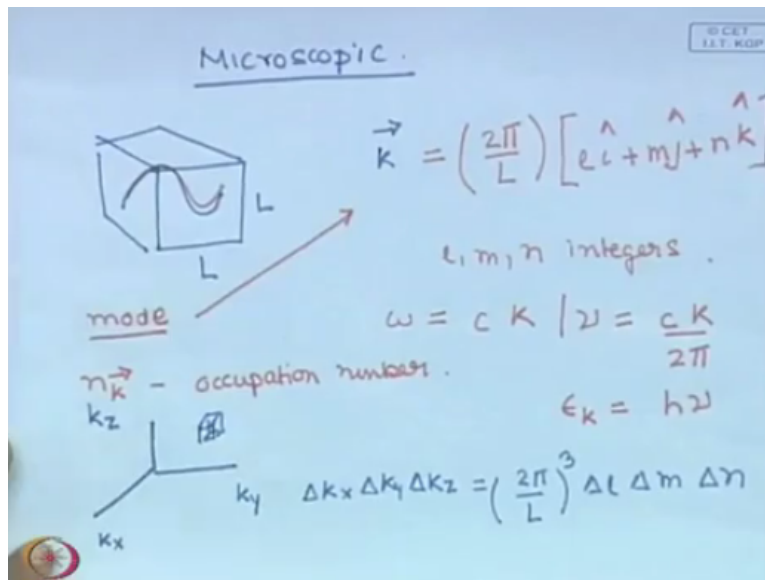 © CET
I.I.T. KGP
Microscopic.
k⃗ = (2π/L) [l î + m ĵ + n k̂]
L
L
l, m, n integers.
mode
ω = c k | ν = c k / 2π
n_k⃗ - occupation number.
ϵ_k = hν
k_z
k_y
k_x
Δk_x Δk_y Δk_z = (2π/L)^3 Δl Δm Δn